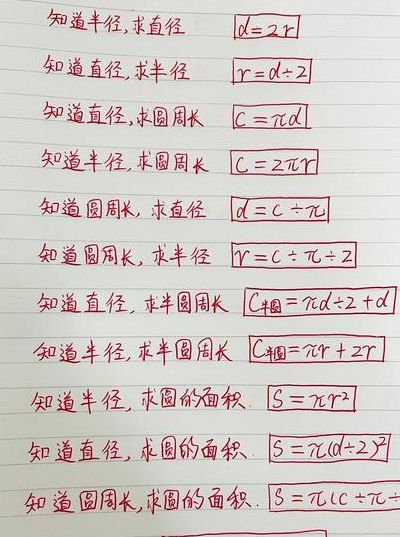 知道半径,求直径 d=2r
知道直径,求半径 r=d÷2
知道直径,求圆周长 C=πd
知道半径,求圆周长 C=2πr
知道圆周长,求直径 d=c÷π
知道圆周长,求半径 r=c÷π÷2
知道直径,求半圆周长 C半圆=πd÷2+d
知道半径,求半圆周长 C半圆=πr+2r
知道半径,求圆的面积. S=πr²
知道直径,求圆的面积. S=π(d÷2)²
知道圆周长,求圆的面积. S=π(c÷π÷